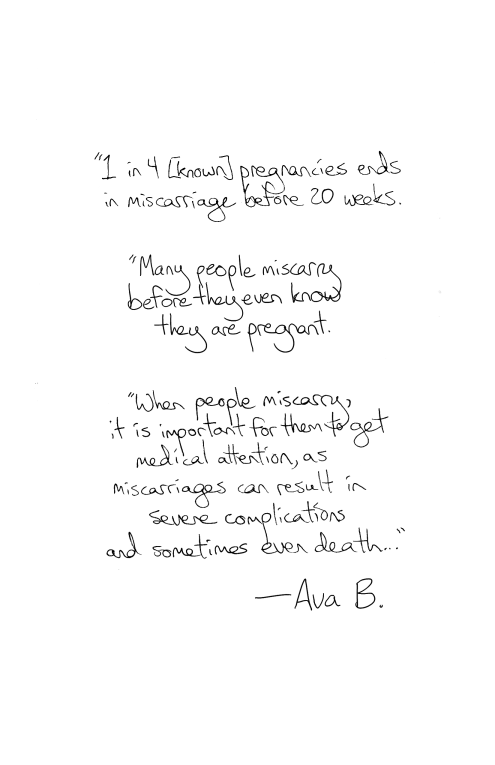 "1 in 4 [known] pregnancies ends
in miscarriage before 20 weeks.
"Many people miscarry
before they even know
they are pregnant.
"When people miscarry,
it is important for them to get
medical attention, as
miscarriages can result in
severe complications
and sometimes even death..."
—Ava B.